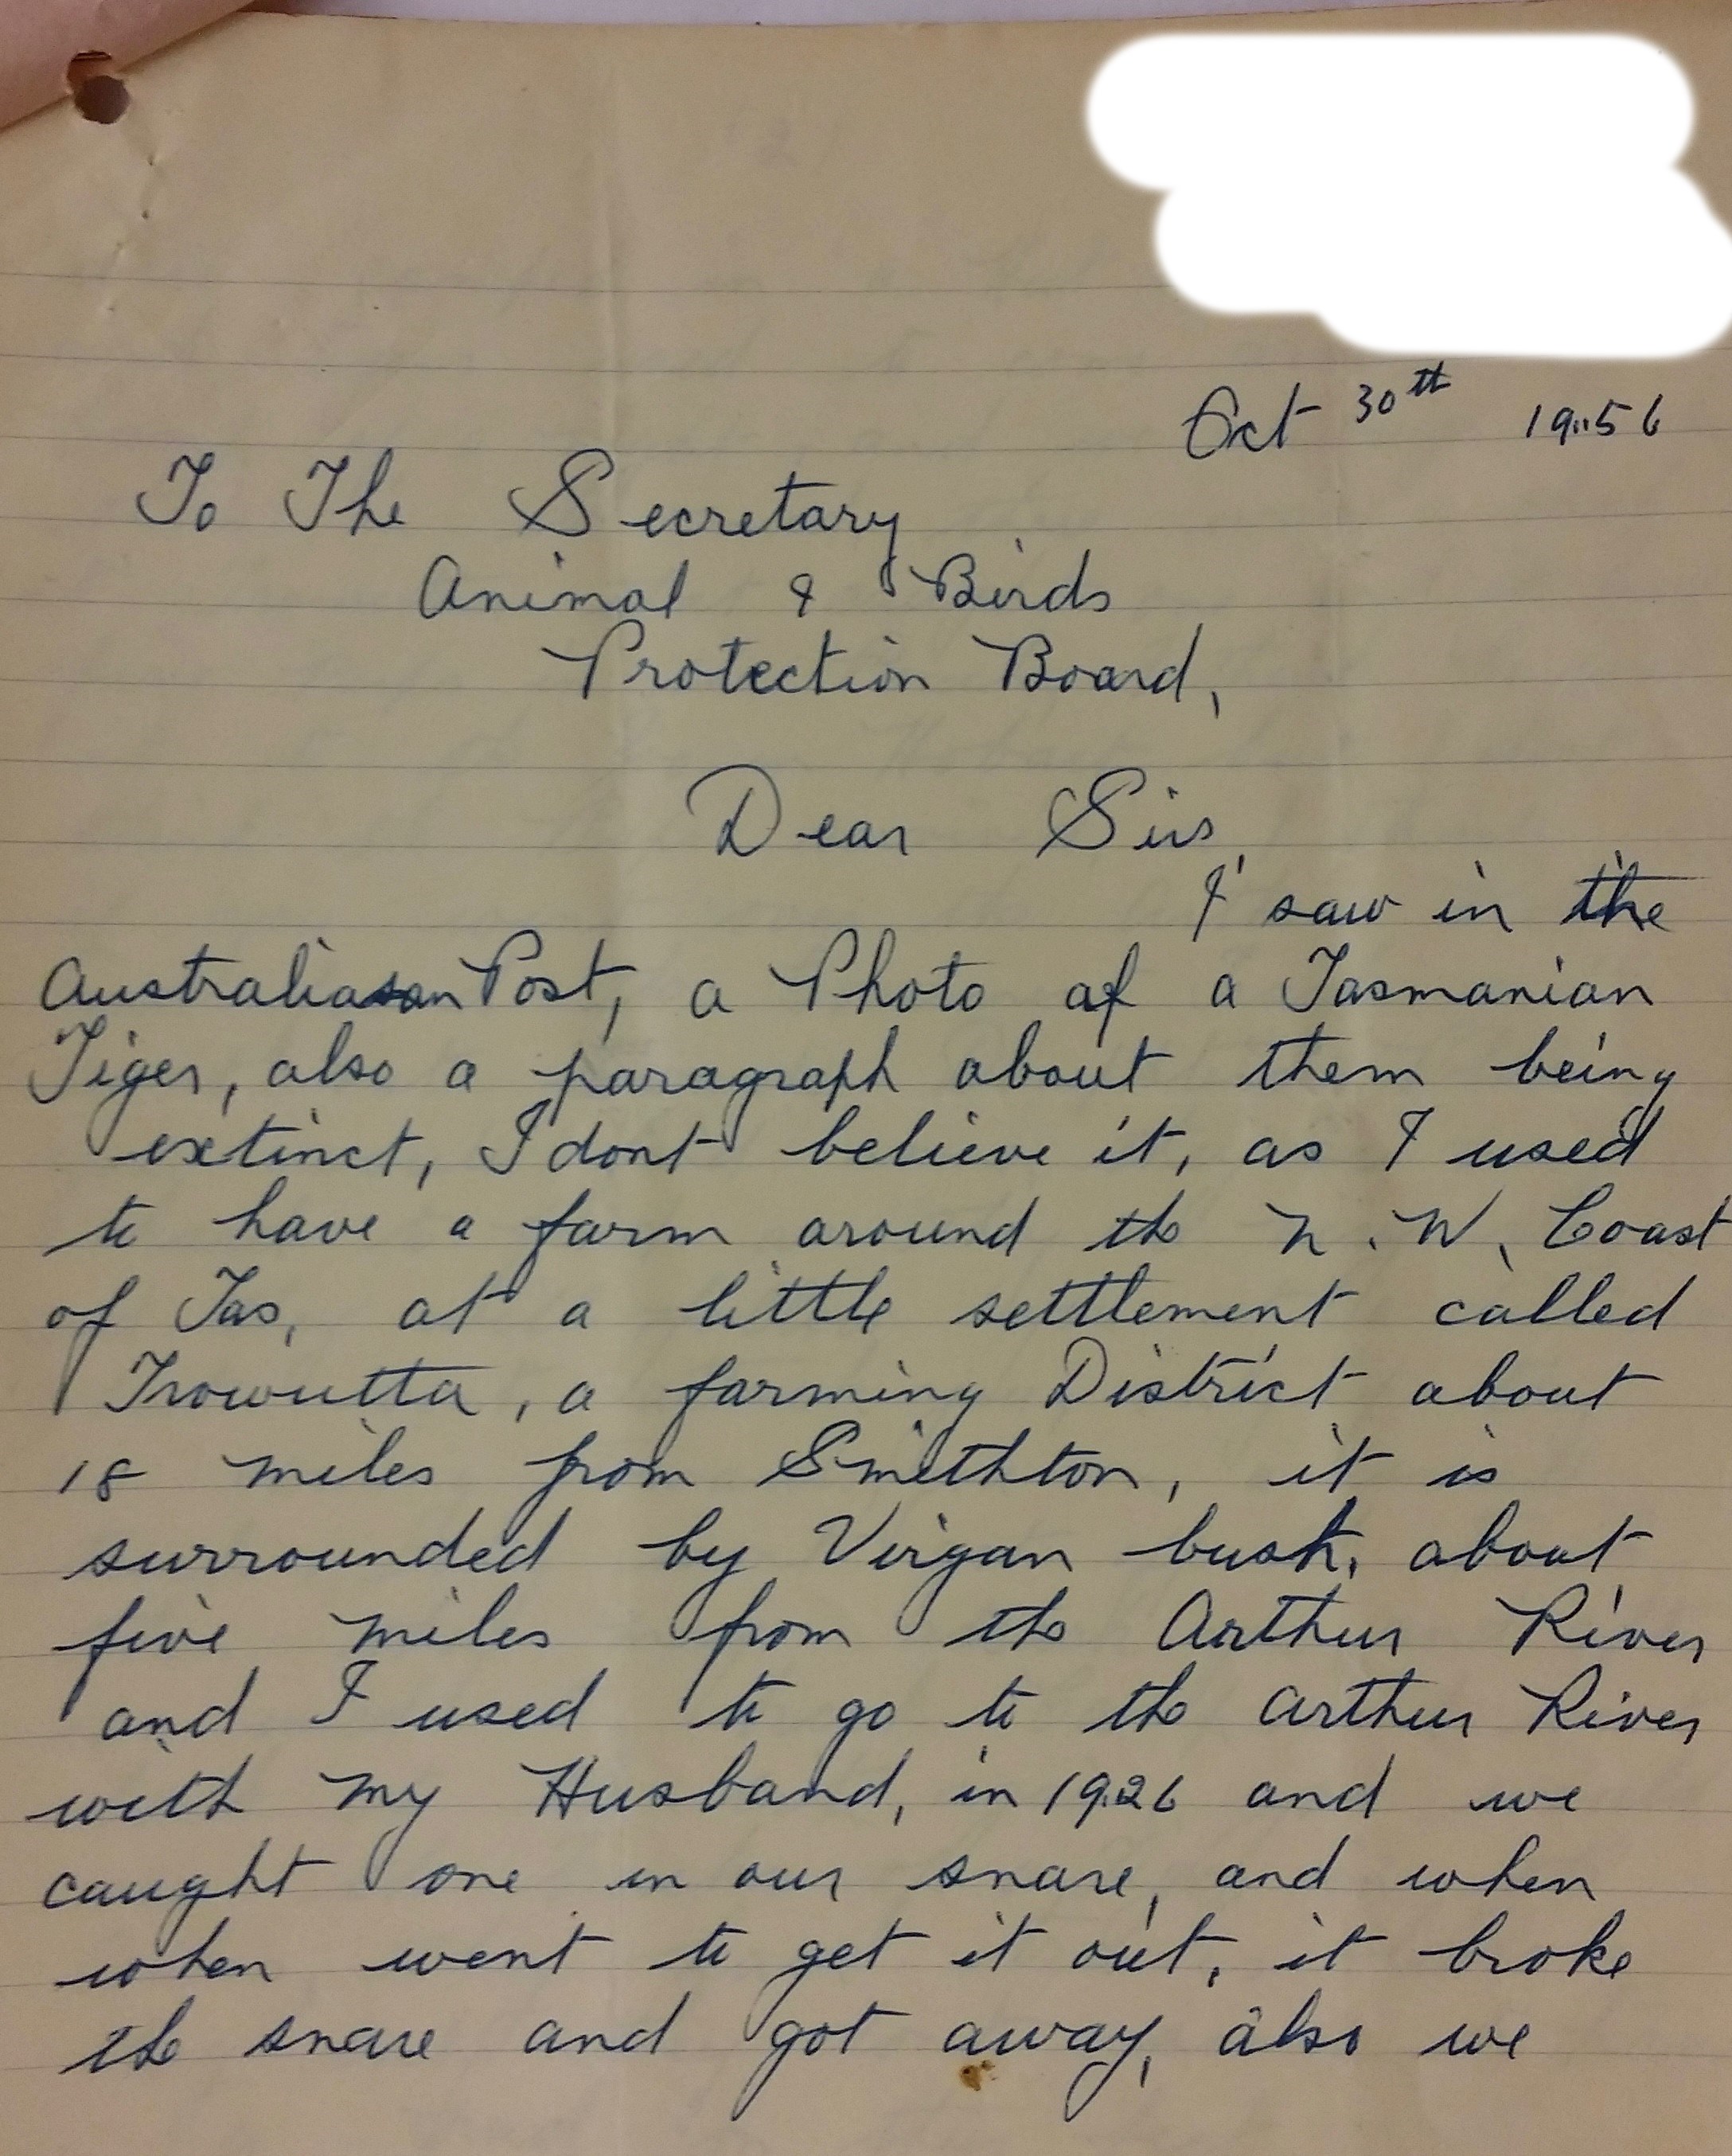 Oct 30th 19..56
To The Secretary
Animal & Birds
Protection Board,
Dear Sir,
I saw in the
Australiasan Post, a Photo of a Tasmanian
Tiger, also a paragraph about them being
extinct, I dont believe it, as I used
to have a farm around the N.W. Coast
of Tas, at a little settlement called
Trowutta, a farming District about
18 miles from Smithton, it is
surrounded by Virgan bush, about
five miles from the Arthur River
and I used to go to the Arthur River
with my Husband, in 19.26 and we
caught one in our snare, and when
when went to get it out, it broke
the snare and got away, also we